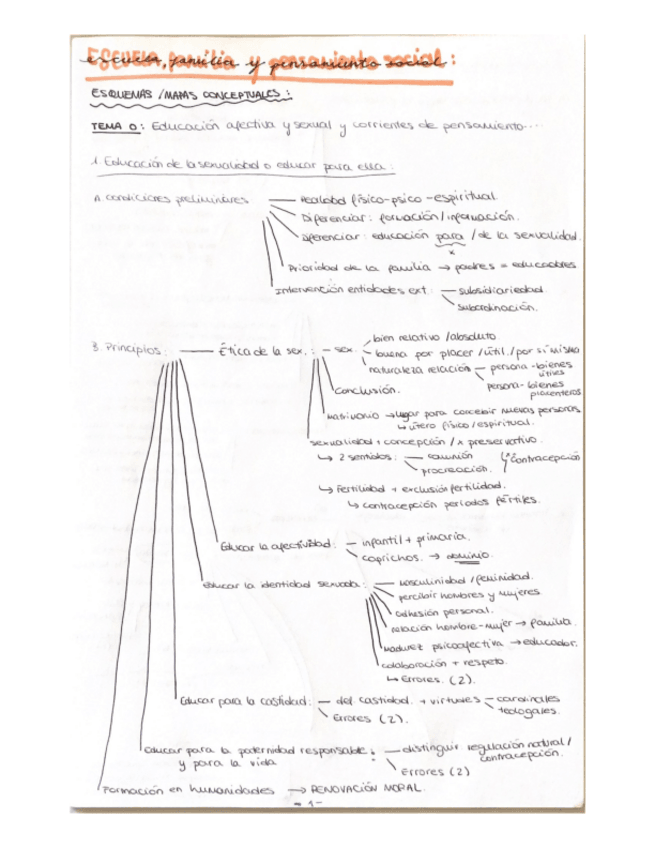 Escuela, familia y pensamiento social:
ESQUEMAS / MAPAS CONCEPTUALES:
TEMA 0: Educación afectiva y sexual y corrientes de pensamiento...
1. Educación de la sexualidad o educar para ella:
A. condiciones preliminares — Realidad físico-psico-espiritual.
Diferenciar: formación/información.
Diferenciar: educación para / de la sexualidad.
x
Prioridad de la familia → padres = educadores
Intervención entidades ext. — subsidiariedad
subordinación.
B. Principios: — Ética de la sex. : — sex — bien relativo /absoluto
bueno por placer /útil /por sí mismo
naturaleza relación — persona-bienes útiles
persona-bienes placenteros
Conclusión.
Matrimonio → lugar para concebir nuevas personas
↳ útero físico/espiritual.
Sexualidad + concepción / x preservativo.
↳ 2 sentidos: — comunión
procreación.
↳ contracepción
↳ Fertilidad + exclusión fertilidad.
↳ contracepción periodos fértiles.
Educar la afectividad: — infantil + primaria.
caprichos. → dominio.
Educar la identidad sexuada: — masculinidad /feminidad.
percibir hombres y mujeres
adhesión personal.
relación hombre-mujer → familia.
Madurez psicoafectiva → educador.
colaboración + respeto.
↳ Errores. (2).
Educar para la castidad: — def. castidad. + virtudes — cardinales
teologales.
Errores (2).
Educar para la paternidad responsable y para la vida : — distinguir regulación natural / contracepción.
Errores (2)
Formación en humanidades → RENOVACIÓN MORAL.
- 1 -